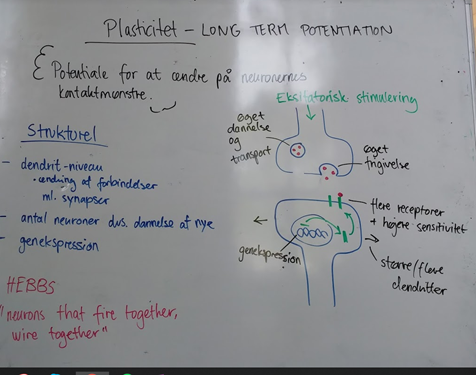 Plasticitet - LONG TERM POTENTIATION
Potentiale for at ændre på neuronernes
kontaktmønstre.
Eksitatorisk stimulering
Strukturel
- dendrit-niveau
• ændring af forbindelser
ml. synapser
- antal neuroner dvs. dannelse af nye
- genekspression
HEBBS
"neurons that fire together,
wire together"
øget
dannelse
og
transport
øget
frigivelse
flere receptorer
+ højere sensitivitet
genekspression
større/flere
dendritter